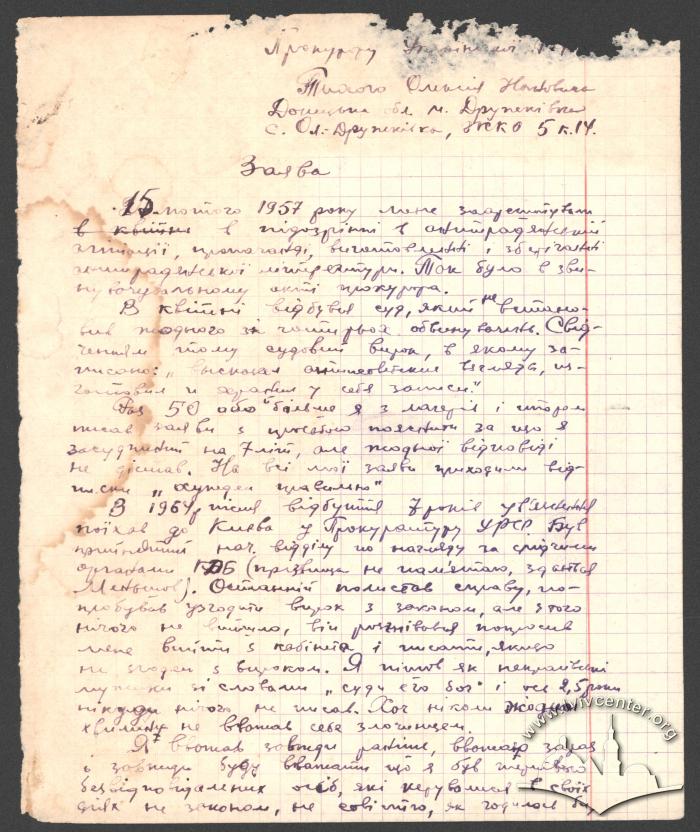 Прокурору Української
Тихого Олексія Івановича
Донецька обл. м. Дружківка
с. Ол-Дружківка, 5 к. 14.
Заява
15 лютого 1957 року мене заарештували
в квітні в підозрінні в антирадянській
агітації, пропаганді, виготовленні і зберіганні
антирадянської літератури. Так було в зви-
нувачувальному акті прокурора.
В квітні відбувся суд, який не встано-
вив жодного зі чотирьох обвинувачень. Свід-
ченням тому судовий вирок, в якому за-
писано: „высказал антисоветские взгляды, из-
готовил и хранил у себя записи."
Раз 50 або більше я з таборів і тюрем
писав заяви з просьбою пояснити за що я
засуджений на 7 літ, але жодної відповіді
не дістав. На всі мої заяви приходили від-
писки „осужден правильно"
В 1964, після відбуття 7 років ув'язнення
поїхав до Києва у Прокуратуру УРСР. Був
прийнятий нач. відділу по нагляду за слідчими
органами КДБ (прізвища не пам'ятаю, здається
Меньшов). Останній полистав справу, по-
пробував узгодити вирок з законом, але з того
нічого не вийшло, він розгнівався попросив
мене вийти з кабінета і писати, якщо
не згоден з вироком. Я пішов як некрасівські
мужики зі словами „суди его бог" і ось 2,5 роки
нікуди нічого не писав. Хоч ніколи жодної
хвилини не вважав себе злочинцем.
Я вважав завжди раніше, вважаю зараз
і завжди буду вважати що я був жертвою
безвідповідальних осіб, які керувалися в своїх
діях не законом, не совістю, як годилося б
www.lvivcenter.org